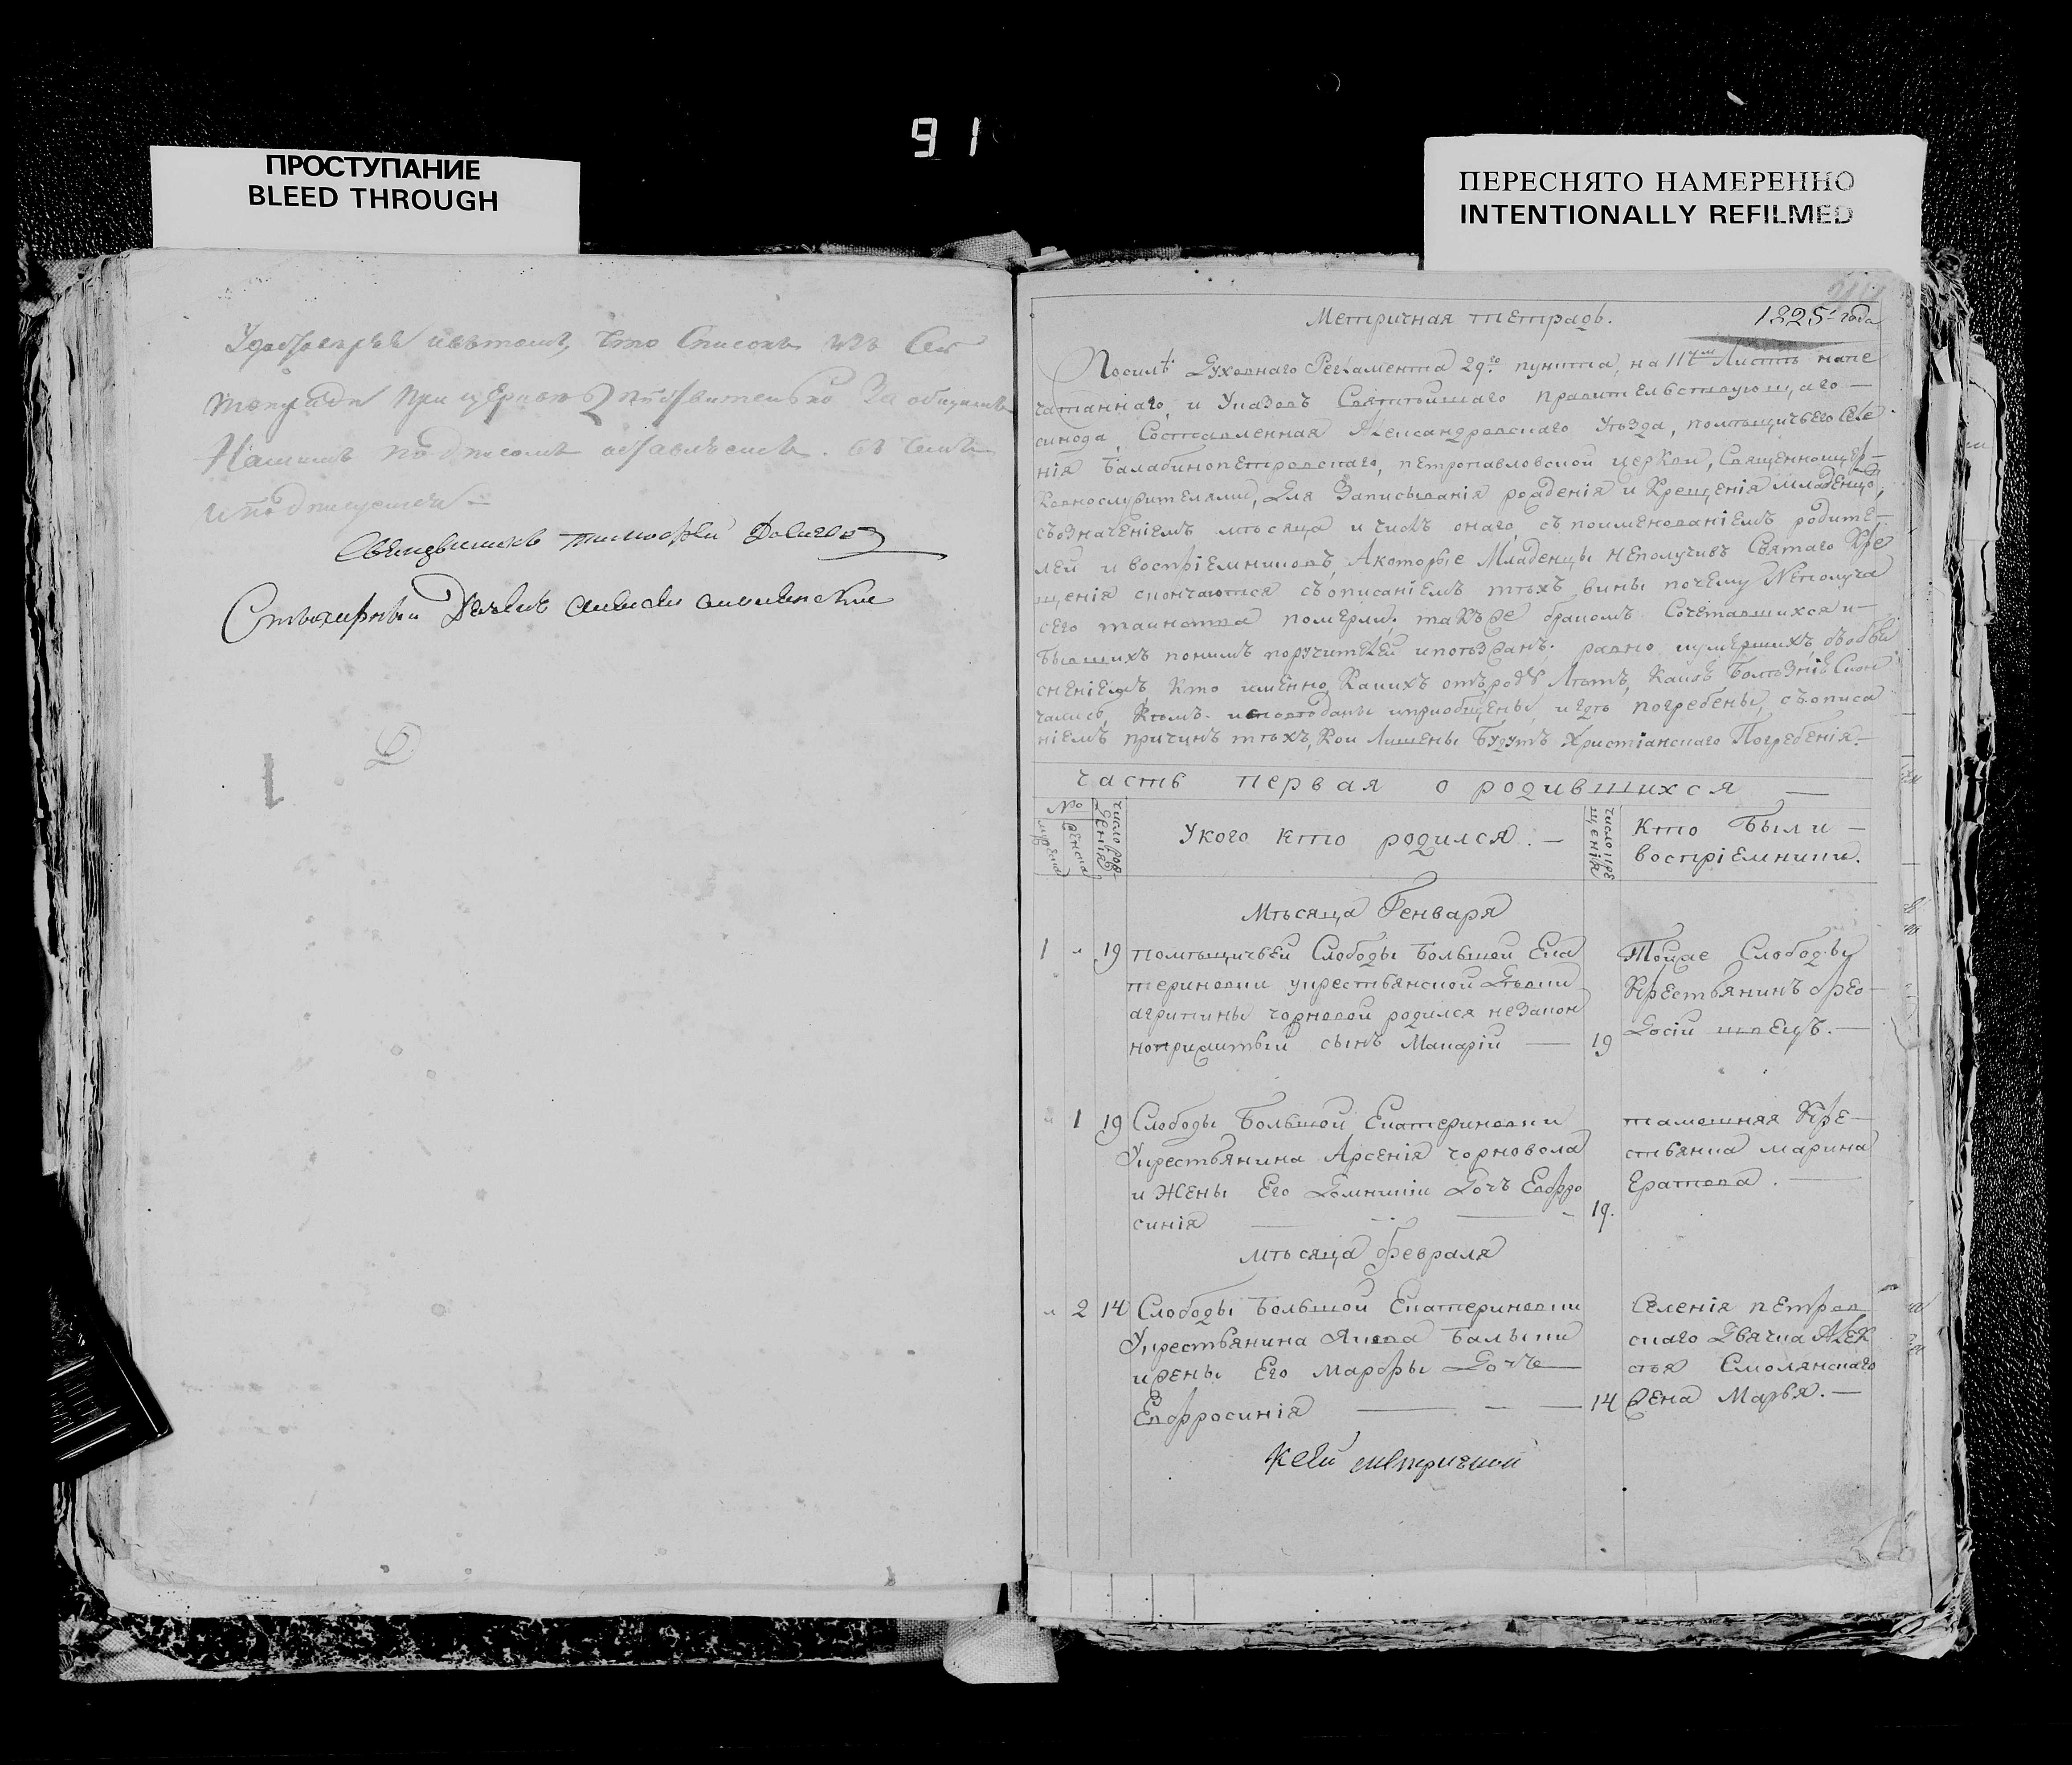 91
ПРОСТУПАНИЕ
BLEED THROUGH
ПЕРЕСНЯТО НАМЕРЕННО
INTENTIONALLY REFILMED
что Списокъ изъ Сей
тетради при церкви за общимъ
Нашимъ подписомъ въ чемъ
и подписуемся
Священникъ тимофей
Стихарный Дьячекъ Алексей Смолянский
Метричная тетрадь. 1825 года
Посилѣ Духовнаго Регламента 29го пункта, на 11чм Листѣ напе
чатаннаго, и Указовъ Святѣйшаго правительствующаго
синода, Составленная Александровскаго Уѣзда, помѣщичьего Селе
нія Балабинопетровскаго, петропавловской церкви, Священноцер
ковнослужителями, Для Записыванія рожденія и Крещенія младенцовъ,
съозначеніемъ мѣсяца и числъ онаго, съ поименованіемъ родите
лей и воспріемниковъ, Акоторые Младенцы Неполучивъ Святаго Кре
щенія скончаются съописаніемъ тѣхъ вины почему Неполуча
сего таинства померли. такъже бракомъ Сочетавшихся и
бывшихъ понимъ поручителей и поѣзжанъ. равно иумершихъ, съобъя
сненіемъ, Кто именно, Какихъ отъроду Лѣтъ, Какою Болѣзнію Скон
чались, Кѣмъ исповѣданы иприобщены, игдѣ погребены, съописа
ніемъ причинъ тѣхъ, Кои Лишены Будутъ Христіанскаго Погребенія.
часть первая о родившихся
№
мужеска
женска
число рож
денія
Укого кто родился.
число кре
щенія
Кто Были
воспріемники.
Мѣсяца Генваря
1 19 помѣщичьей Слободы Большой Ека
териновки укрестьянской Дѣвки
агрипины чорновой родился незакон
ноприжитый сынъ Макарій 19
Тойже Слободы
Крестьянинъ Фео
досій швецъ.
1 19 Слободы Большой Екатериновки
Укрестьянина Арсенія чорновола
и Жены Его Домникіи Дочъ Евфро
синія 19.
тамошняя Кре
стьянка марина
Братова.
мѣсяца Февраля
2 14 Слободы Большой Екатериновки
Укрестьянина Якова Балыки
ижены Его Марфы Дочъ
Евфросинія 14
Селенія петров
скаго Дьячка Алек
сѣя Смолянскаго
Жена Марья.
Къ сей метричной